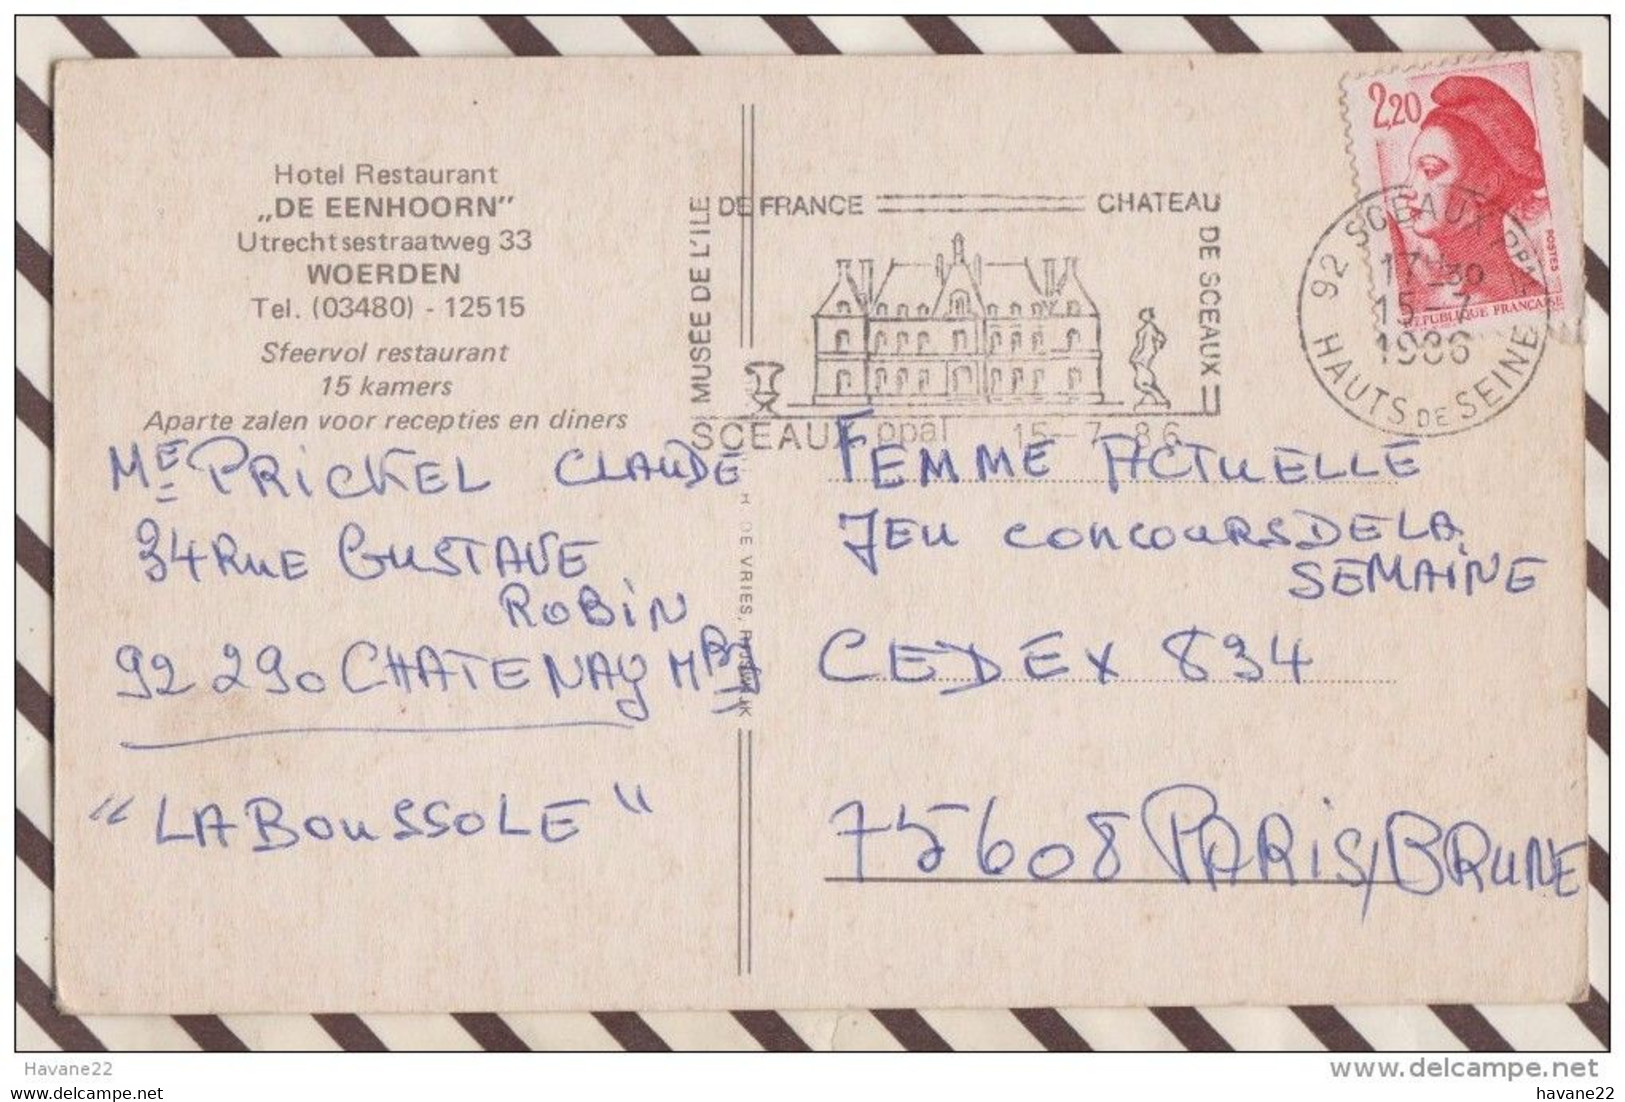 Hotel Restaurant
„DE EENHOORN”
Utrechtsestraatweg 33
WOERDEN
Tel. (03480) - 12515
Sfeervol restaurant
15 kamers
Aparte zalen voor recepties en diners
MUSEE DE L'ILE DE FRANCE
CHATEAU DE SCEAUX
SCEAUX ppal 15-7-86
2,20
POSTES
REPUBLIQUE FRANCAISE
92 SCEAUX PPAL
17H30
15-7
1986
HAUTS DE SEINE
ME PRICKEL CLAUDE
34 RUE GUSTAVE
ROBIN
92 290 CHATENAY MBRY
"LA BOUSSOLE"
DE VRIES,
FEMME ACTUELLE
JEU CONCOURS DE LA
SEMAINE
CEDEX 834
75608 PARIS/BRUNE
Havane22
www.delcampe.net
havane22